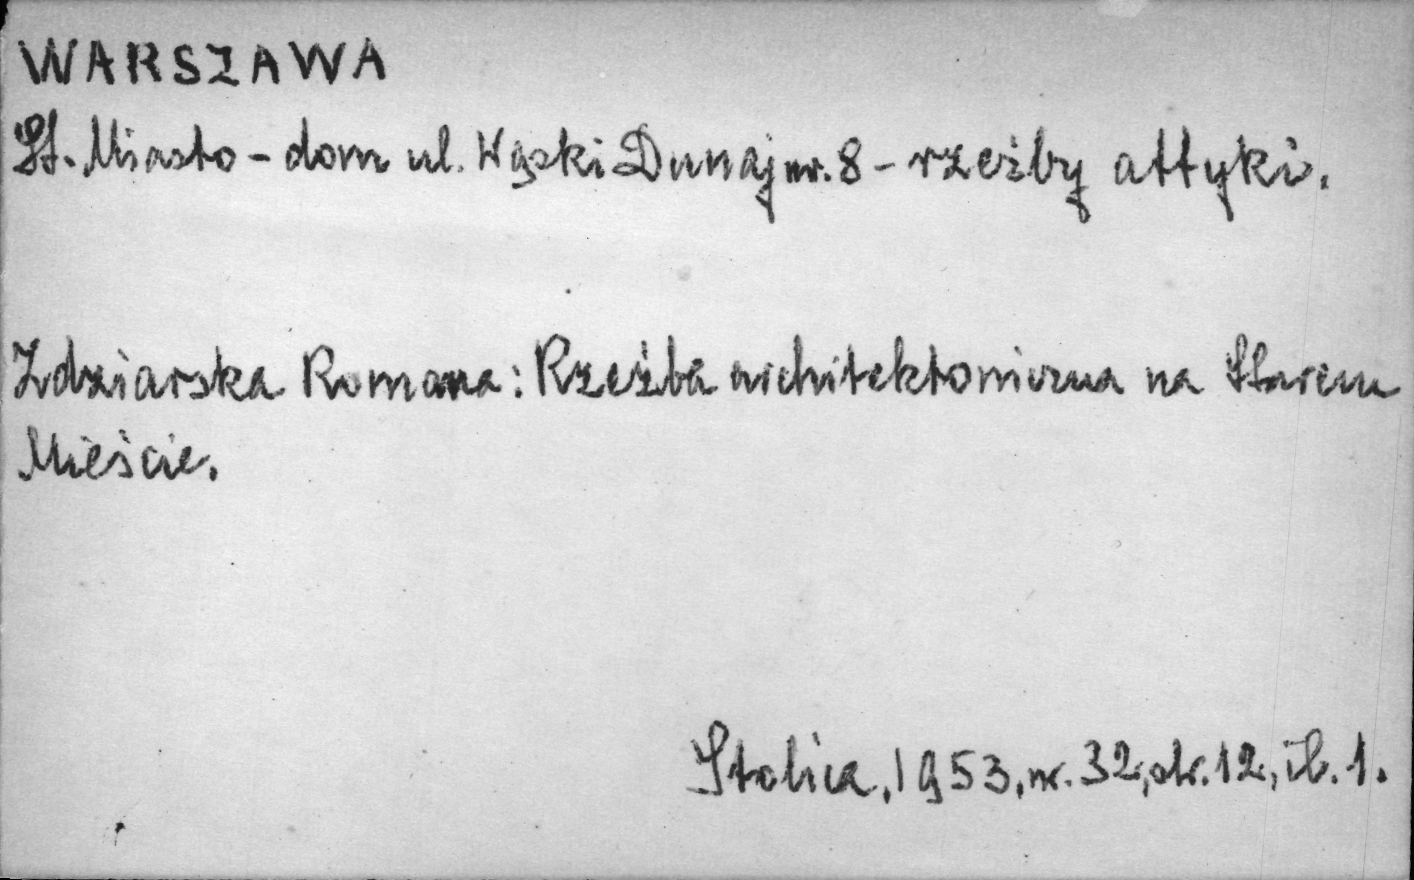 WARSZAWA
St. Miasto - dom ul. Wąski Dunaj nr. 8 - rzeźby attyki.
Zdziarska Romana: Rzeźba architektoniczna na Starem
Mieście.
Stolica, 1953, nr. 32, str. 12, il. 1.